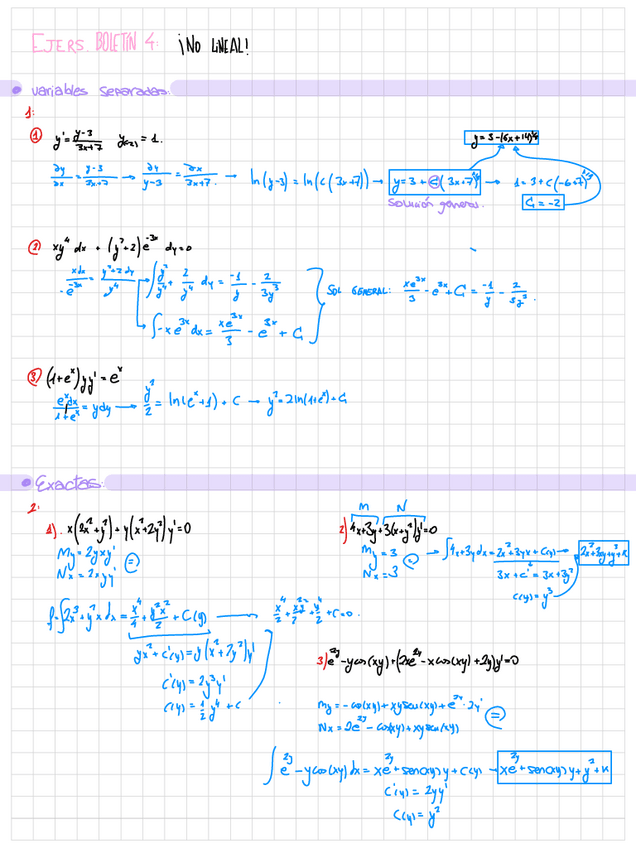 EJERS. BOLETÍN 4: ¡NO LINEAL!
• Variables separadas:
1:
① y' = (y-3)/(3x+7)   y(-2) = 1.
y = 3-(6x+14)^(1/3)
∂y/∂x = (y-3)/(3x+7) → ∂y/(y-3) = ∂x/(3x+7) → ln(y-3) = ln(C(3x+7)) → y = 3 + C(3x+7)^(1/3) → 1 = 3 + C(-6+7)^(1/3)
Solución general.
C = -2
② xy⁴ dx + (y²+2)e^(-3x) dy = 0
xdx/-e^(-3x) = (y²+2 dy)/y⁴ → ∫ y²/y⁴ + 2/y⁴ dy = -1/y - 2/(3y³)
SOL GENERAL: xe^(3x)/3 - e^(3x) + C = -1/y - 2/(3y³).
→ ∫ -xe^(3x) dx = xe^(3x)/3 - e^(3x) + C
③ (1+e^x) y y' = e^x
e^x dx/(1+e^x) = y dy → y²/2 = ln(e^x+1) + C → y² = 2ln(1+e^x) + C
• Exactas:
2:
1). x(2x²+y²) + y(x²+2y²) y' = 0
My = 2yxy'
Nx = 2xyy'
=
f = ∫ 2x³ + y²x dx = x⁴/4 + y²x²/2 + C(y)
x⁴/2 + x²y²/2 + y⁴/2 + C = 0.
yx² + C'(y) = y(x²+2y²)y'
C'(y) = 2y³y'
C(y) = 1/2 y⁴ + C
M   N
2) 4x+3y+3(x+y²)y' = 0
My = 3
Nx = 3
=
→ ∫ 4x+3y dx = 2x²+3yx + C(y) → 2x²+3xy+y³+K
3x + C' = 3x+3y²
C(y) = y³
3) e^(2y) - y cos(xy) + (2xe^(2y) - x cos(xy) + 2y) y' = 0
My = -cos(xy) + xysen(xy) + e^(2y) · 2y'
Nx = 2e^(2y) - cos(xy) + xysen(xy)
=
∫ e^(2y) - y cos(xy) dx = xe^(2y) + sen(xy) y + C(y) → xe^(2y) + sen(xy) y + y² + K
C'(y) = 2yy'
C(y) = y²